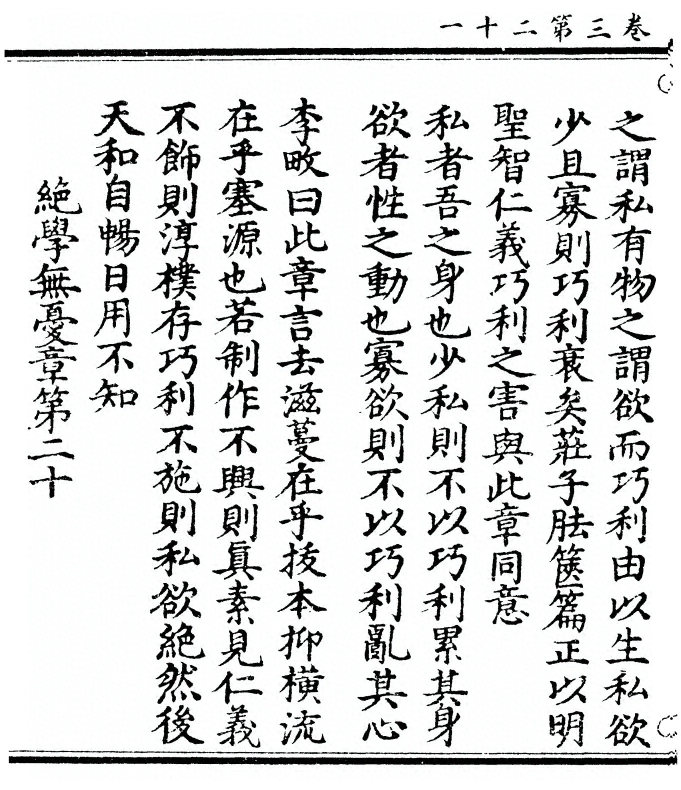 卷三第二十一
之謂私有物之謂欲而巧利由以生私欲
少且寡則巧利衰矣莊子胠篋篇正以明
聖智仁義巧利之害與此章同意
私者吾之身也少私則不以巧利累其身
欲者性之動也寡欲則不以巧利亂其心
李畋曰此章言去滋蔓在乎拔本抑横流
在乎塞源也若制作不興則眞素見仁義
不飾則淳樸存巧利不施則私欲絶然後
天和自暢日用不知
絶學無憂章第二十